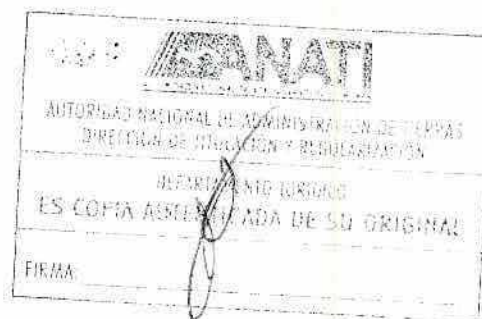 ANATI
AUTORIDAD NACIONAL DE ADMINISTRACIÓN DE TIERRAS
DIRECCIÓN DE TITULACIÓN Y REGULARIZACIÓN
DEPARTAMENTO JURIDICO
ES COPIA AUTENTICADA DE SU ORIGINAL
FIRMA: